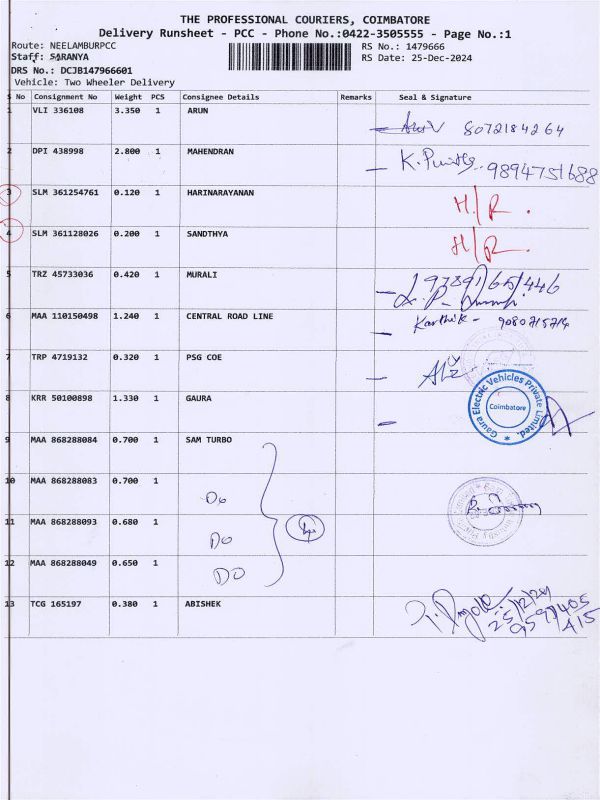 THE PROFESSIONAL COURIERS, COIMBATORE
Delivery Runsheet - PCC - Phone No.:0422-3505555 - Page No.:1
Route: NEELAMBURPCC RS No.: 1479666
Staff: SARANYA RS Date: 25-Dec-2024
DRS No.: DCJB147966601
Vehicle: Two Wheeler Delivery
S No Consignment No Weight PCS Consignee Details Remarks Seal & Signature
1 VLI 336108 3.350 1 ARUN 8072184264
2 DPI 438998 2.800 1 MAHENDRAN 9894751688
3 SLM 361254761 0.120 1 HARINARAYANAN H/R.
4 SLM 361128026 0.200 1 SANDTHYA H/R.
5 TRZ 45733036 0.420 1 MURALI
6 MAA 110150498 1.240 1 CENTRAL ROAD LINE Karthik - 9080715714
7 TRP 4719132 0.320 1 PSG COE
8 KRR 50100898 1.330 1 GAURA Gaura Electric Vehicles Private Limited. Coimbatore
9 MAA 868288084 0.700 1 SAM TURBO
10 MAA 868288083 0.700 1 Do
11 MAA 868288093 0.680 1 DO
12 MAA 868288049 0.650 1 DO
13 TCG 165197 0.380 1 ABISHEK 25/12/24